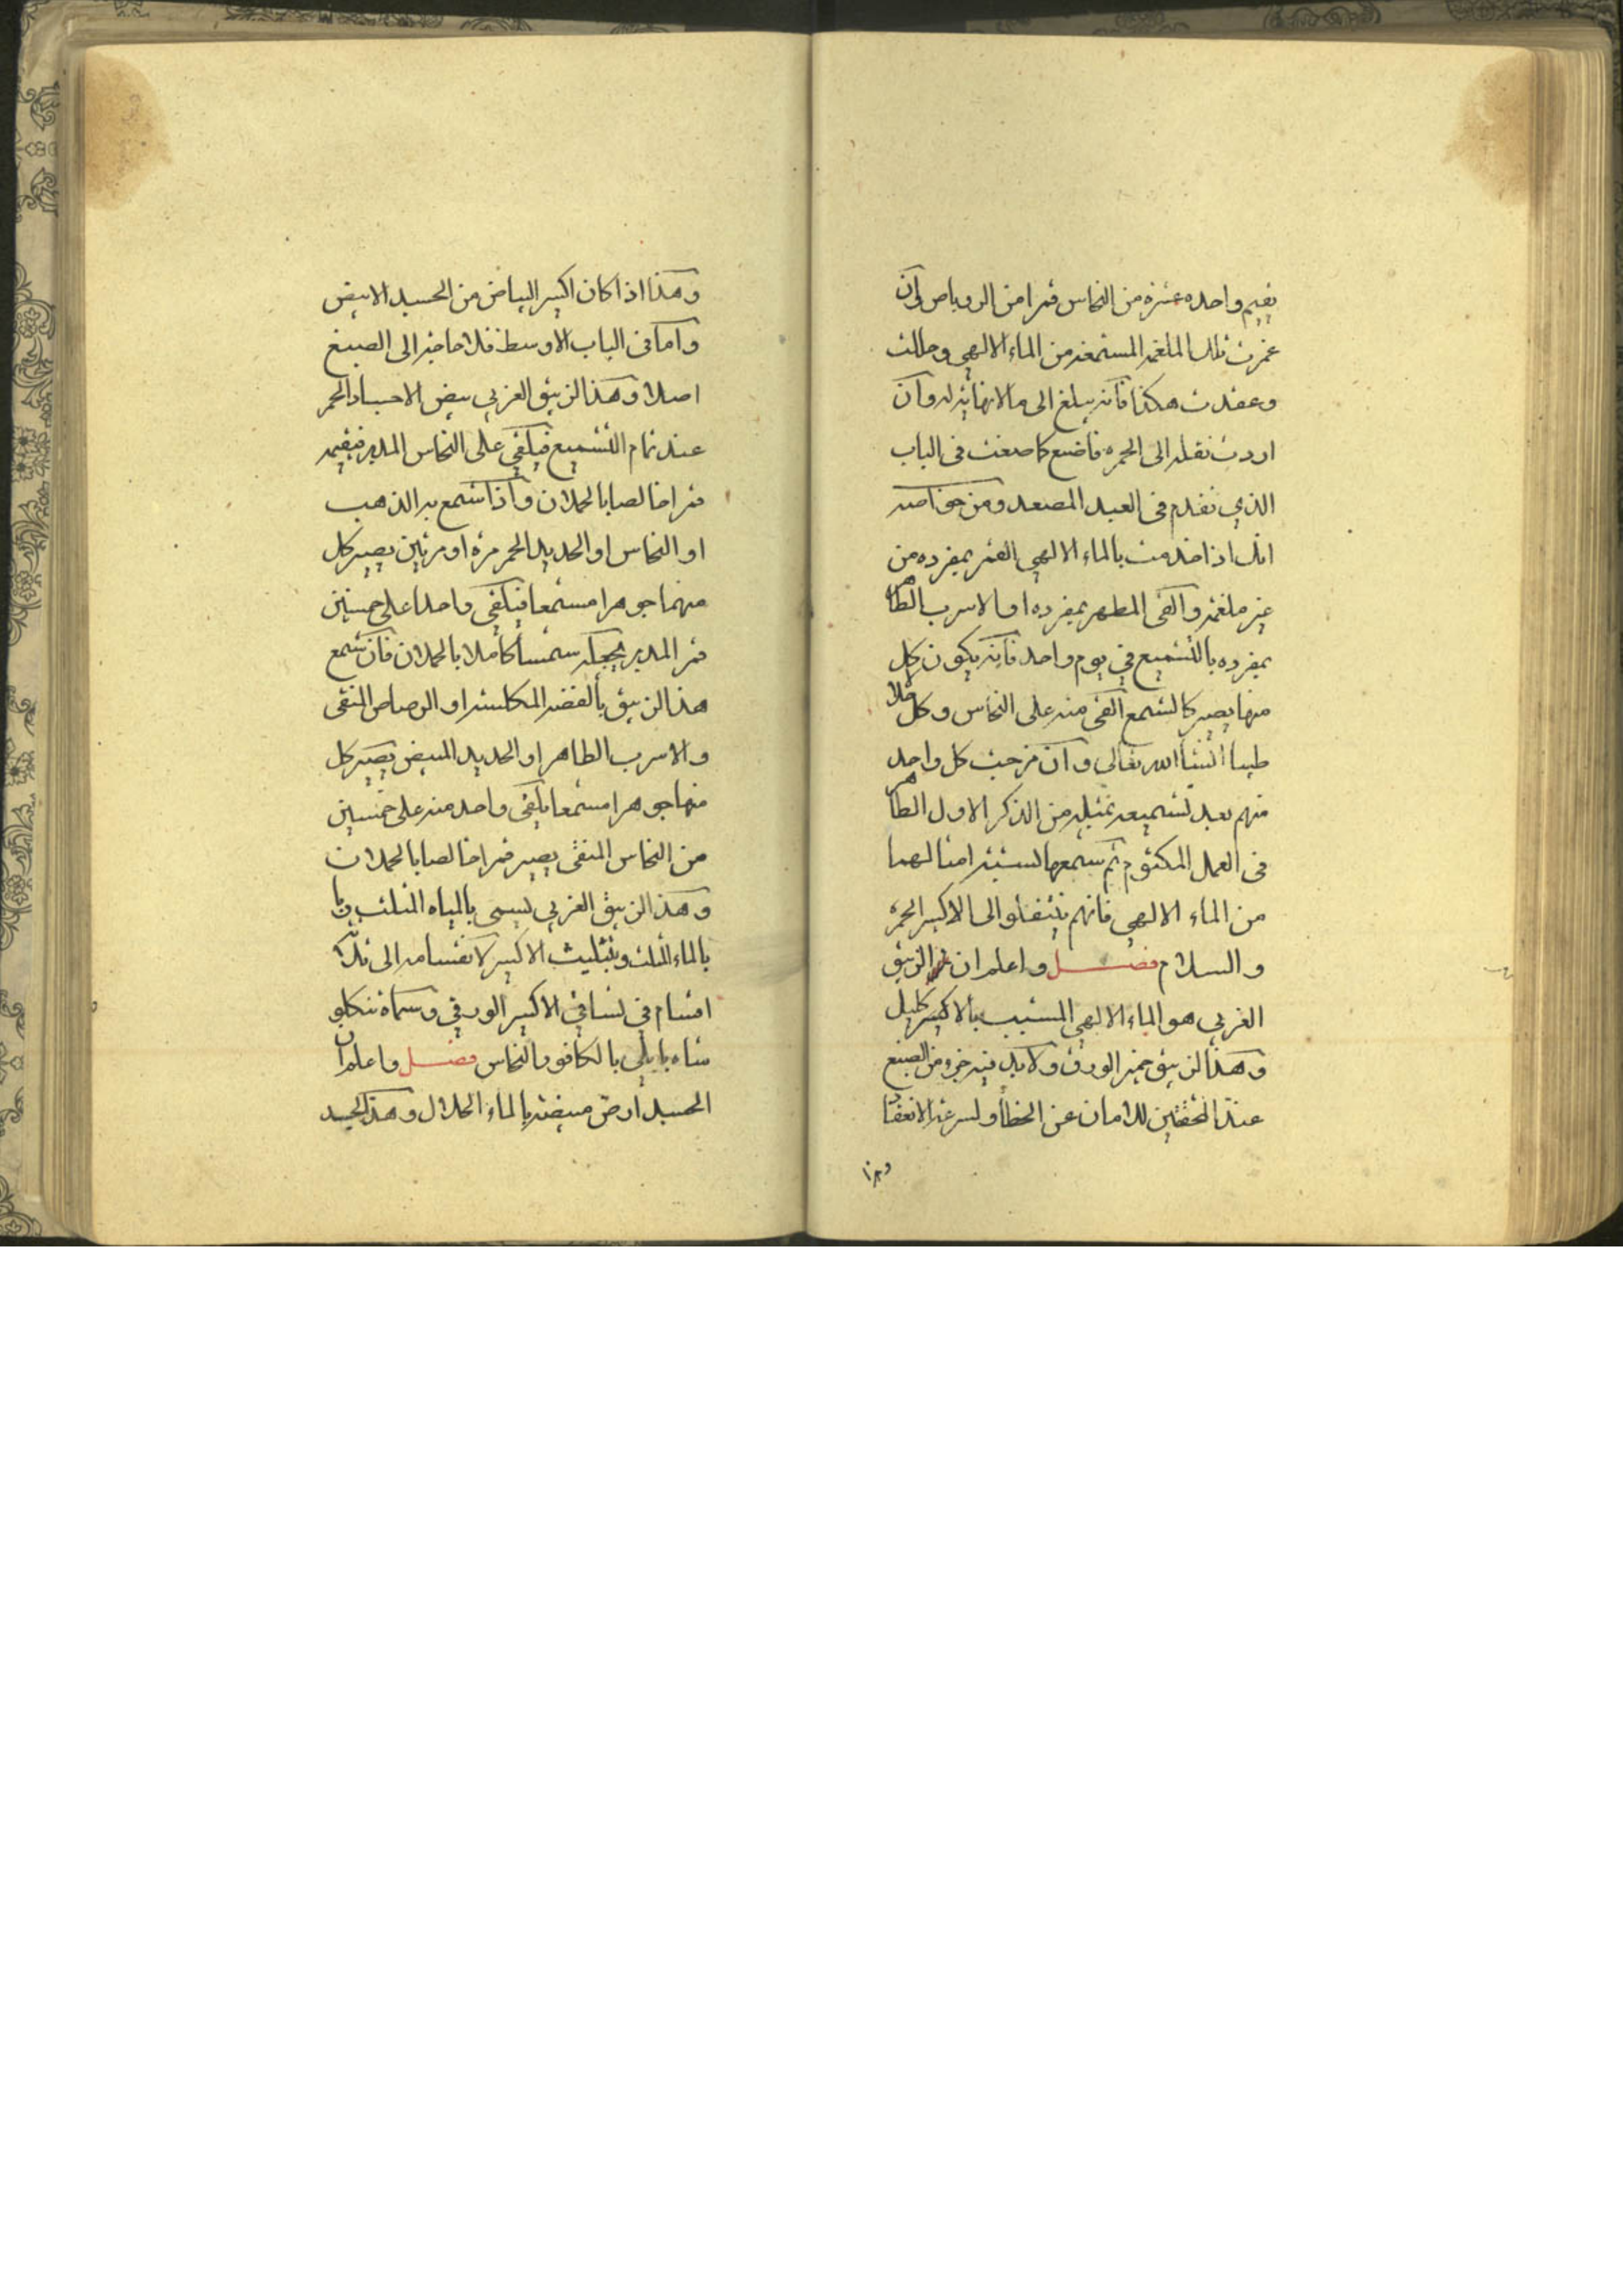 يقيم واحده عشرة من النحاس قمرا من الروباص وان
غمرت تلك الملغمة المستمعة من الماء الالهي وحللت
وعقدت هكذا فانه يبلغ الى ما لا نهاية له وان
اردت نقله الى الحمرة فاصنع كما صنعت في الباب
الذي تقدم في العبد المصعد ومن خواصه
انك اذا خدمت بالماء الالهي القمر بمفرده من
غير ملغمة والقي المطهر بمفرده او الاسرب الطاهر
بمفرده بالتشميع في يوم واحد فانه يكون كل
منها يصير كالشمع القي منه على النحاس وكل حلالا
طيبا انشأ الله تعالى وان مزجت كل واحد
منهم بعد تشميعه بمثله من الذكر الاول الطاهر
في العمل المكتوم ثم شمعها لستة امثالهما
من الماء الالهي فانهم ينتقلو الى الاكسير الحمرة
والسلام فصل واعلم ان الزيبق
الغربي هو الماء الالهي المشبب بالاكسير كليل
وهذا الزيبق خمير الورق ولا بد فيه جزء من الصبغ
عند المحققين للامان عن الخطأ ولسرعة الانعقاد
وهذا
وهذا اذا كان اكسير البياض من الجسد الابيض
واما في الباب الاوسط فلا حاجة الى الصبغ
اصلا وهذا الزيبق الغربي يبيض الاجساد الحمر
عند تمام التشميع فيلقي على النحاس المدبر فيقيمه
قمرا خالصا بالحملان واذا شمع به الذهب
او النحاس او الحديد المحمر مرة او مرتين يصير كل
منهما جوهرا مشمعا فيلقي واحدا على خمسين
قمر المدبر يجعله شمسا كاملا بالحملان فان شمع
هذا الزيبق بالفضة المكلسة او الرصاص المنقى
والاسرب الطاهر او الحديد المبيض يصير كل
منها جوهرا مشمعا يلقى واحد منه على خمسين
من النحاس المنقى يصير قمرا خالصا بالحملان
وهذا الزيبق الغربي يسمى بالمياه الثلث
بالماء المثلث وبتثليث الاكسير لانقسامه الى ثلاثة
اقسام في لساقي الاكسير الورقي وسماه تنكلو
شاه بابلي بالكافور النحاس فصل واعلم ان
الجسد ارض مبيضة بالماء الحلال وهذا الجسد